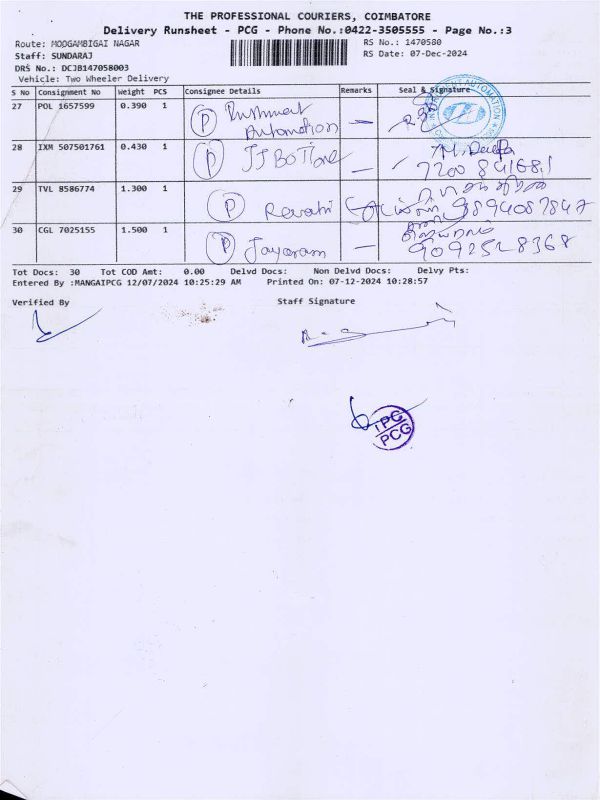 THE PROFESSIONAL COURIERS, COIMBATORE
Delivery Runsheet - PCG - Phone No.:0422-3505555 - Page No.:3
Route: MOOGAMBIGAI NAGAR RS No.: 1470580
Staff: SUNDARAJ RS Date: 07-Dec-2024
DRS No.: DCJB147058003
Vehicle: Two Wheeler Delivery
S No Consignment No Weight PCS Consignee Details Remarks Seal & Signature
27 POL 1657599 0.390 1 P Automation
28 IXM 507501761 0.430 1 P M. Deepa
7200841681
29 TVL 8586774 1.300 1 P Revathi 9894087847
30 CGL 7025155 1.500 1 P Jayaram — 9092528368
Tot Docs: 30 Tot COD Amt: 0.00 Delvd Docs: Non Delvd Docs: Delvy Pts:
Entered By :MANGAIPCG 12/07/2024 10:25:29 AM Printed On: 07-12-2024 10:28:57
Verified By Staff Signature
TPC
PCG